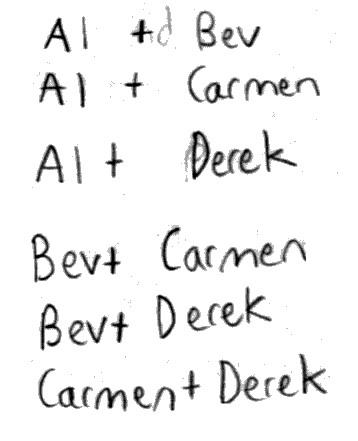 Al + Bev
Al + Carmen
Al + Derek
Bev + Carmen
Bev + Derek
Carmen + Derek